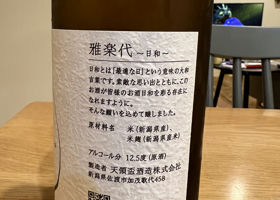 雅楽代 ～日和～
日和とは「最適な日」という意味の大和
言葉です。素敵な思い出とともに、この
お酒が皆様のお酒日和を彩る存在に
なれますように。
そんな願いを込めて醸しました。
原材料名 米（新潟県産）、
米麹（新潟県産米）
アルコール分 12.5度（原酒）
製造者 天領盃酒造株式会社
新潟県佐渡市加茂歌代458